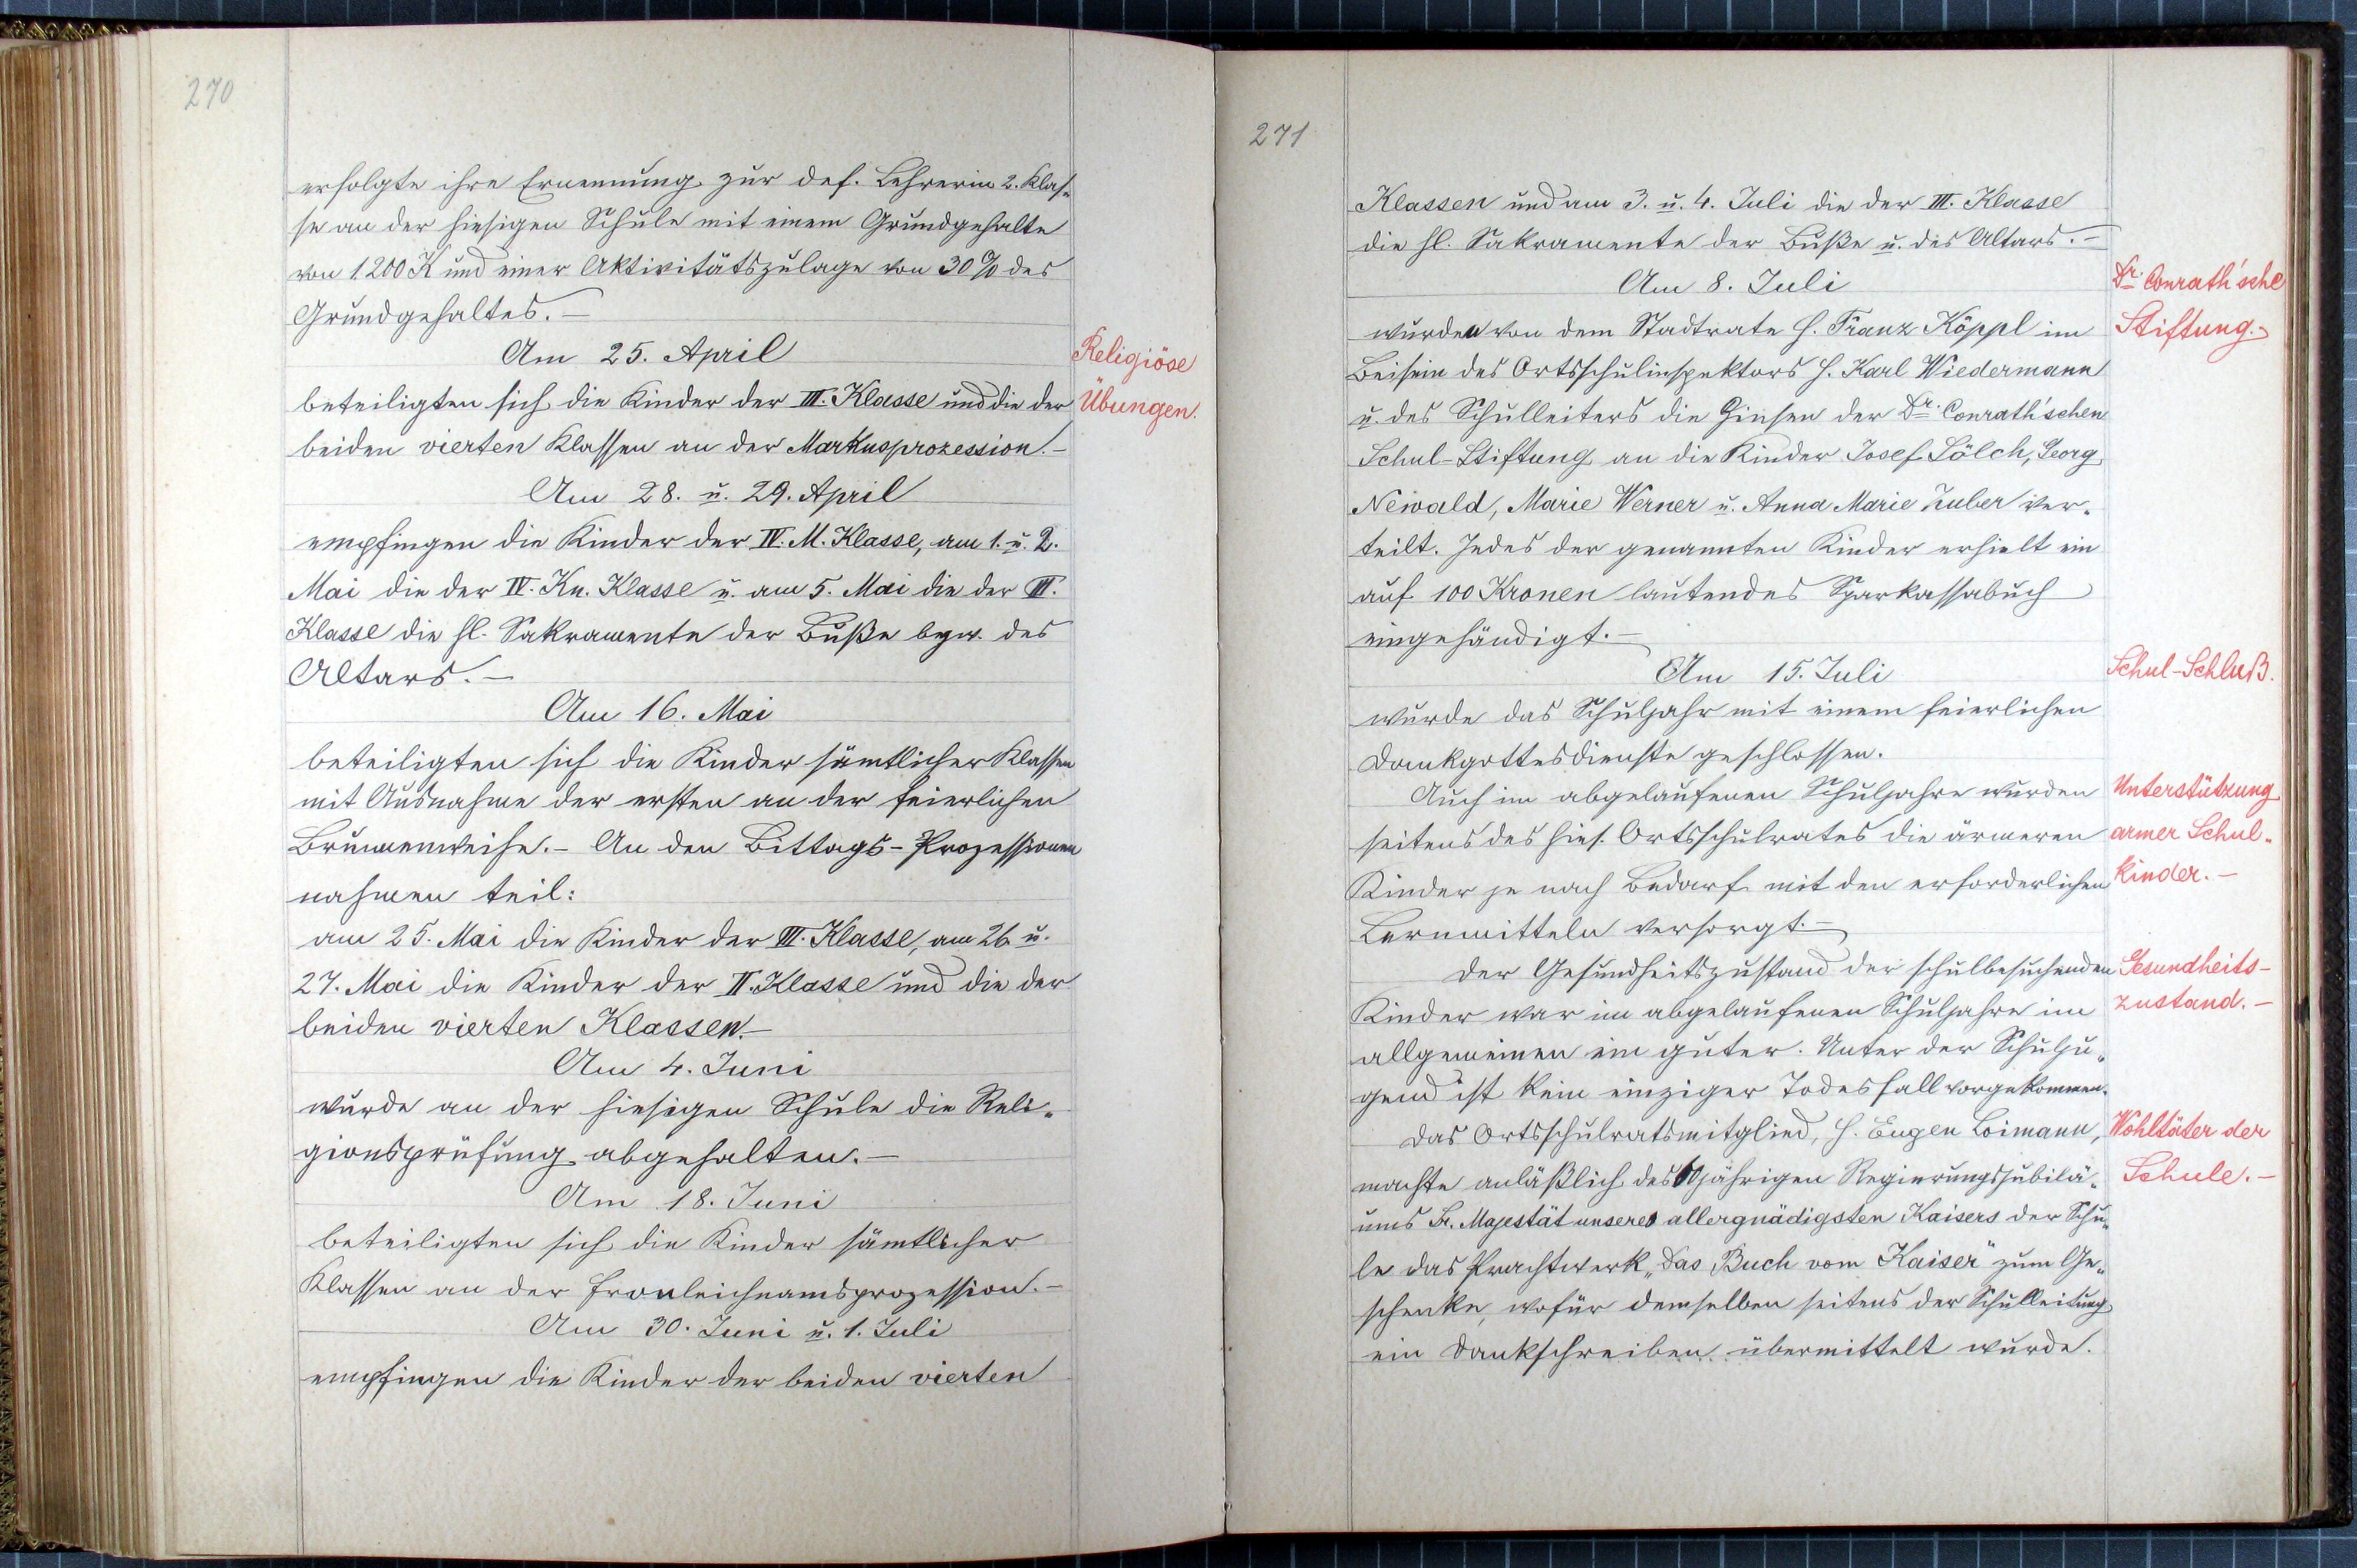 270
erfolgte ihre Ernennung zur def. Lehrerin 2. Klas-
se an der hiesigen Schule mit einem Grundgehalte
von 1.200 K und einer Aktivitätszulage von 30% des
Grundgehaltes.-
Am 25. April
Religiöse
beteiligten sich die Kinder der III. Klasse und die der
Übungen.
beiden vierten Klassen an der Markusprozession.-
Am 28. u. 29. April
empfingen die Kinder der IV. M. Klasse, am 1. u. 2.
Mai die der IV. Kn. Klasse u. am 5. Mai die der III.
Klasse die hl. Sakramente der Buße bzw. des
Altars.-
Am 16. Mai
beteiligten sich die Kinder sämtlicher Klassen
mit Ausnahme der ersten an der feierlichen
Brunnenweihe.- An den Bittags-Prozessionen
nahmen teil:
am 25. Mai die Kinder der III. Klasse, am 26. u.
27. Mai die Kinder der II. Klasse und die der
beiden vierten Klassen.-
Am 4. Juni
wurde an der hiesigen Schule die Reli-
gionsprüfung abgehalten.-
Am 18. Juni
beteiligten sich die Kinder sämtlicher
Klassen an der Fronleichnamsprozession.-
Am 30. Juni u. 1. Juli
empfingen die Kinder der beiden vierten
271
Klassen und am 3. u. 4. Juli die der III. Klasse
die hl. Sakramente der Buße u. des Altars.-
Am 8. Juli
Dr. Conrath'sche
wurden von dem Stadtrate H. Franz Köppl im
Stiftung.-
Beisein des Ortsschulinspektors H. Karl Wiedermann
u. des Schulleiters die Zinsen der Dr. Conrath'schen
Schul-Stiftung an die Kinder Josef Sölch, Georg
Newald, Marie Werner u. Anna Marie Zuber ver-
teilt. Jedes der genannten Kinder erhielt ein
auf 100 Kronen lautendes Sparkassabuch
eingehändigt.-
Am 15. Juli
Schul-Schluß.
wurde das Schuljahr mit einem feierlichen
Dankgottesdienste geschlossen.
Auch im abgelaufenen Schuljahre wurden
Unterstützung
seitens des hies. Ortsschulrates die ärmeren
armer Schul-
Kinder je nach Bedarf mit den erforderlichen
kinder.-
Lernmitteln versorgt.-
Der Gesundheitszustand der schulbesuchenden
Gesundheits-
Kinder war im abgelaufenen Schuljahre im
zustand.-
allgemeinen ein guter. Unter der Schulju-
gend ist kein einziger Todesfall vorgekommen.
Das Ortsschulratsmitglied, H. Eugen Loimann,
Wohltäter der
machte anläßlich des 60jährigen Regierungsjubilä-
Schule.-
ums Sr. Majestät unseres allergnädigsten Kaisers der Schu-
le das Prachtwerk „Das Buch vom Kaiser" zum Ge-
schenke, wofür demselben seitens der Schulleitung
ein Dankschreiben übermittelt wurde.